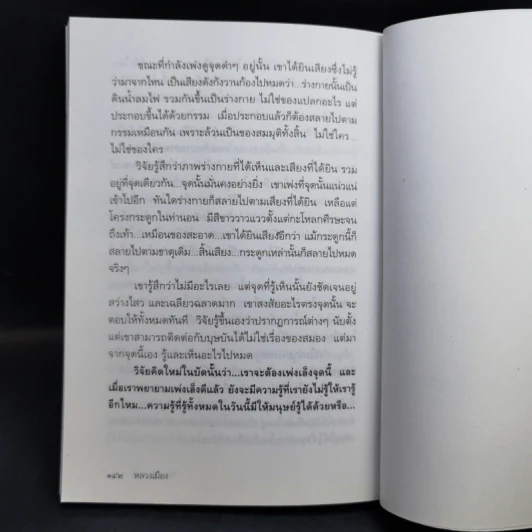 ขณะที่กำลังเพ่งดูจุดดำๆ อยู่นั้น เขาได้ยินเสียงซึ่งไม่รู้
ว่ามาจากไหน เป็นเสียงดังกังวานก้องไปหมดว่า...ร่างกายนั้นเป็น
ดินน้ำลมไฟ รวมกันขึ้นเป็นร่างกาย ไม่ใช่ของแปลกอะไร แต่
ประกอบขึ้นได้ด้วยกรรม เมื่อประกอบแล้วก็ต้องสลายไปตาม
กรรมเหมือนกัน เพราะล้วนเป็นของสมมุติทั้งสิ้น ไม่ใช่ใคร...
ไม่ใช่ของใคร
วิจัยรู้สึกว่าภาพร่างกายที่ได้เห็นและเสียงที่ได้ยิน รวม
อยู่ที่จุดเดียวกัน...จุดนั้นมั่นคงอย่างยิ่ง เขาเพ่งที่จุดนั้นแน่วแน่
เข้าไปอีก ทันใดร่างกายก็สลายไปตามเสียงที่ได้ยิน เหลือแต่
โครงกระดูกในท่านอน มีสีขาววาวแววตั้งแต่กะโหลกศีรษะจน
ถึงเท้า...เหมือนของสะอาด...เขาได้ยินเสียงอีกว่า แม้กระดูกนี้ก็
สลายไปตามธาตุเดิม...สิ้นเสียง...กระดูกเหล่านั้นก็สลายไปหมด
จริงๆ
เขารู้สึกว่าไม่มีอะไรเลย แต่จุดที่รู้เห็นนั้นยังชัดเจนอยู่
สว่างไสว และเฉลียวฉลาดมาก เขาสงสัยอะไรตรงจุดนั้น จะ
ตอบให้ทั้งหมดทันที วิจัยรู้ขึ้นเองว่าปรากฏการณ์ต่างๆ นับตั้ง
แต่เขาสามารถติดต่อกับบุษบันได้ไม่ใช่เรื่องของสมอง แต่มา
จากจุดนี้เอง รู้และเห็นอะไรไปหมด
วิจัยคิดใหม่ในบัดนั้นว่า...เราจะต้องเพ่งเล็งจุดนี้ และ
เมื่อเราพยายามเพ่งเล็งดีแล้ว ยังจะมีความรู้ที่เรายังไม่รู้ให้เรารู้
อีกไหม...ความรู้ที่รู้ทั้งหมดในวันนี้มีให้มนุษย์รู้ได้ด้วยหรือ...
๑๔๒ หลวงเมือง